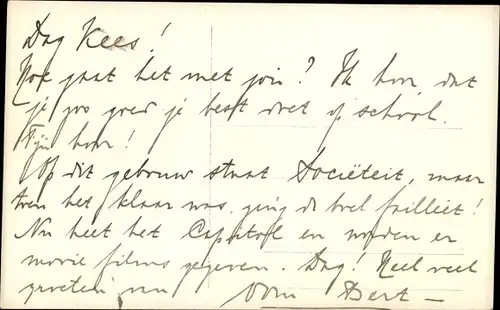 Dag Kees!
Hoe gaat het met jou? Ik hoor, dat
je zoo goed je best doet op school.
Fijn hoor!
Op dit gebouw staat Sociëteit, maar
toen het klaar was, ging de boel failliet!
Nu heet het Capitol en worden er
mooie films gegeven. Dag! Heel veel
groeten van Oom Bert –